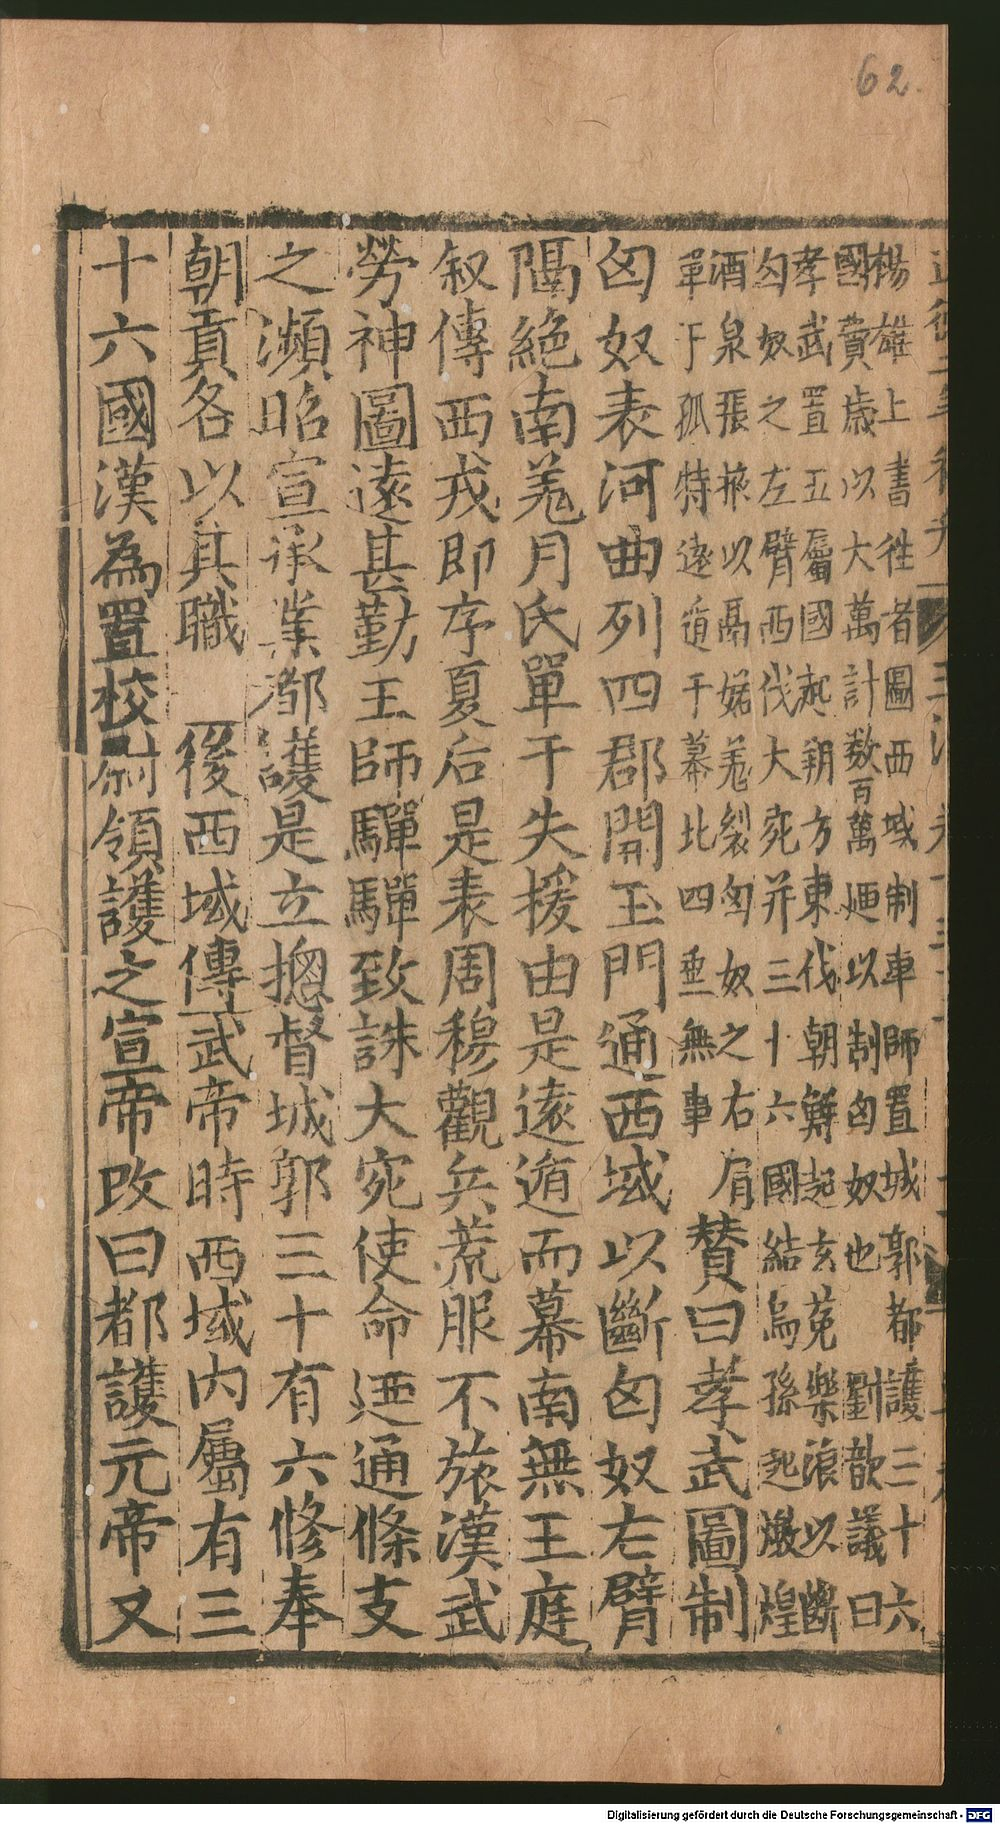 62.
楊雄上書徃者圖西域制車師置城郭都護三十六
國費歳以大萬計数百萬廼以制匈奴也 劉歆議曰
孝武置五屬國起朔方東伐朝鮮起玄菟樂浪以斷
匈奴之左臂西伐大宛并三十六國結烏孫起燉煌
酒泉張掖以鬲婼羌裂匈奴之右肩
單于孤特遠遁于幕北四垂無事
賛曰孝武圖制
匈奴表河曲列四郡開玉門通西域以斷匈奴右臂
隔絶南羌月氏單于失援由是逺遁而幕南無王庭
叙傳西戎即序夏后是表周穆觀兵荒服不旅漢武
勞神圖逺甚勤王師驒驒致誅大宛使命廼通條支
之瀕昭宣承業都護是立摠督城郭三十有六修奉
朝貢各以其職 後西域傳武帝時西域内屬有三
十六國漢為置校尉領護之宣帝改曰都護元帝又
Digitalisierung gefördert durch die Deutsche Forschungsgemeinschaft - DFG